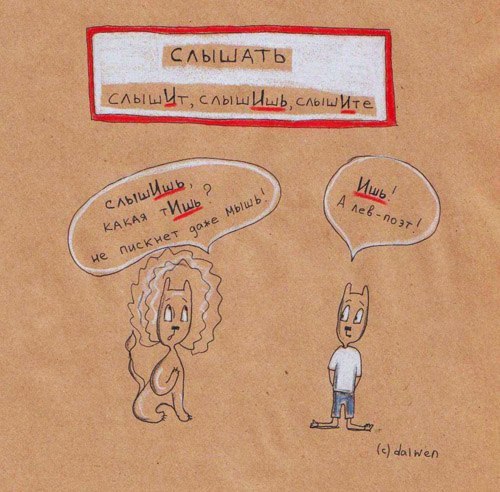 СЛЫШАТЬ
слышИт, слышИшь, слышИте
слышИшь,
какая тИшь?
не пискнет даже мышь!
Ишь!
А лев-поэт!
(c) dalwen